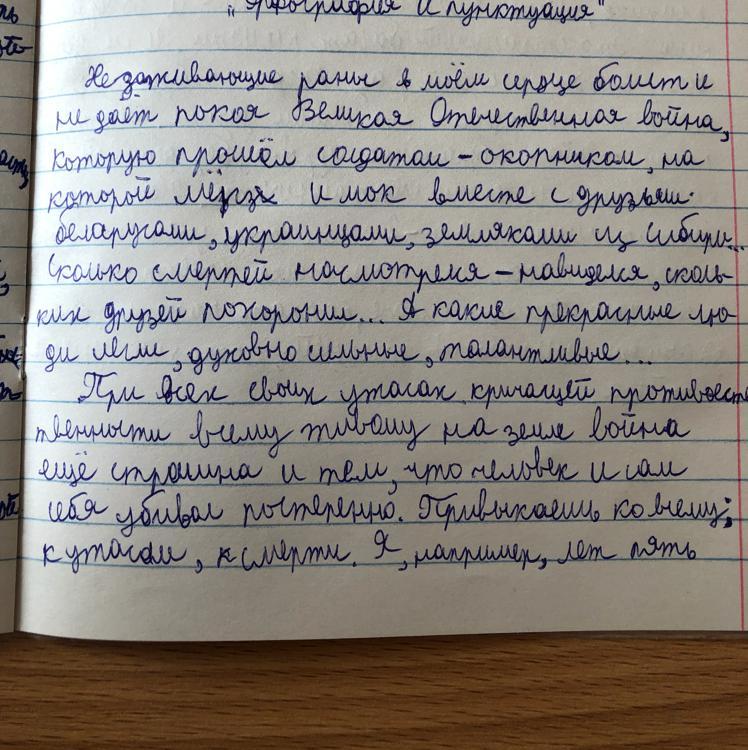 „Орфография и пунктуация"
Незаживающие раны в моём сердце болит и
не даёт покоя Великая Отечественная война,
которую прошёл солдатом - окопником, на
которой мёрз и мок вместе с друзьями:
беларусами, украинцами, земляками из Сибири...
Сколько смертей насмотрелся - навиделся, сколь-
ких друзей похоронил... А какие прекрасные лю-
ди легли, духовно сильные, талантливые...
При всех своих ужасах, кричащей противоест
твенности всему живому на земле война
ещё страшна и тем, что человек и сам
себя убивал постепенно. Привыкаешь ко всему;
к ужасам, к смерти. Я, например, лет пять